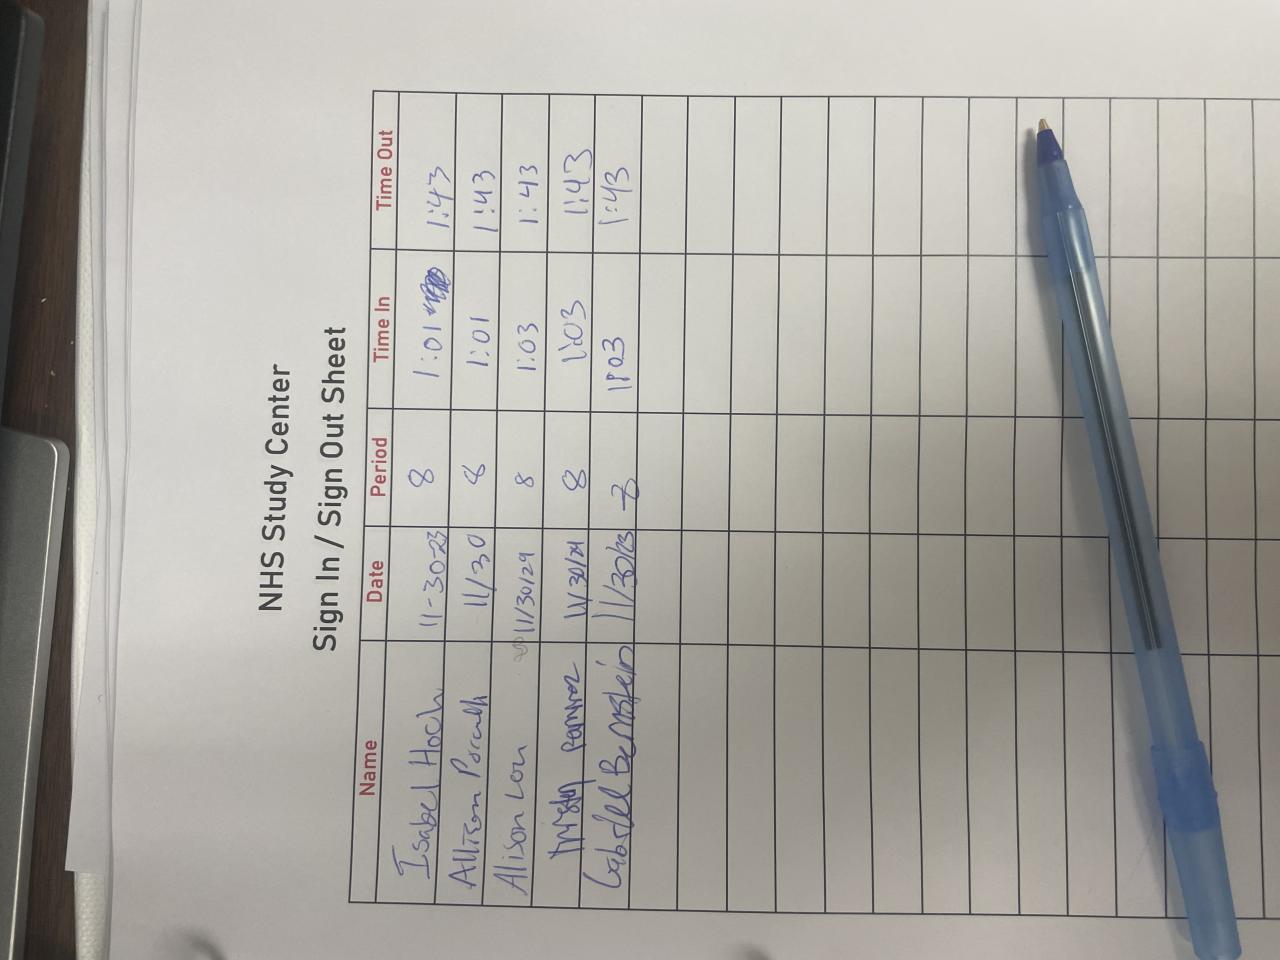 NHS Study Center
Sign In / Sign Out Sheet
Name Date Period Time In Time Out
Isabel Hoch 11-30-23 8 1:01 1:43
Allison 11/30 8 1:01 1:43
Alison Lou 11/30/29 8 1:03 1:43
11/30/24 8 1:03 1:43
Gabriel Bernstein 11/30/23 8 1:03 1:43